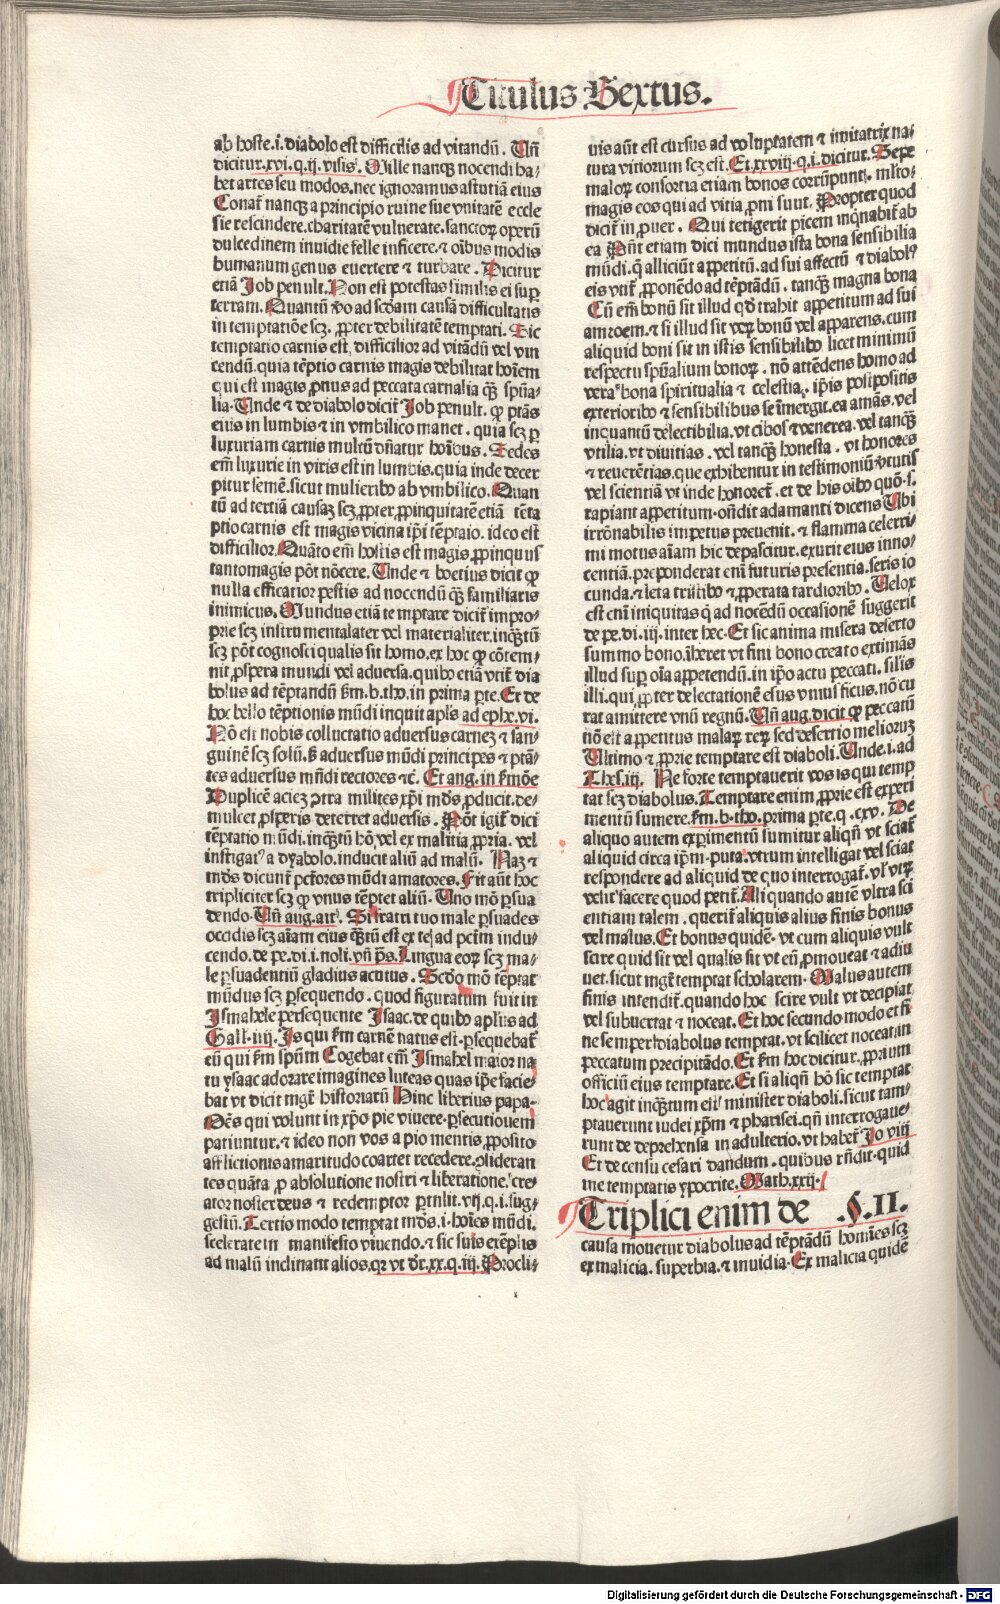 Titulus Sextus.
ab hoste.i. diabolo est difficilis ad vitandū. Uñ
dicitur.xvi.q.ij.visis. Mille nanqꝫ nocendi ha-
bet artes seu modos.nec ignoramus astutiā eius
Conat̄ nanqꝫ a principio ruine sue vnitatē eccle
sie rescindere.charitatē vulnerate.sanctoꝝ operū
dulcedinem inuidie felle inficere.⁊ oībus modis
humanum genus euertere ⁊ turbare. Dicitur
etiā Job penult. Non est potestas similis ei suꝑ
terram. Quantū ꝟo ad scđam causā difficultatis
in temptatiōe scꝫ. ꝓpter debilitatē temptati. Sic
temptatio carnis est difficilior ad vitādū vel vin
cendū.quia tēptio carnis magis debilitat hoīem
qui est magis ꝓnus ad peccata carnalia qꝫ spūa-
lia. Unde ⁊ de diabolo dicit̄ Job penult. ꝙ ptās
eius in lumbis ⁊ in vmbilico manet. quia scꝫ ꝑ
luxuriam carnis multū dñatur hoībus. Sedes
em̄ luxurie in viris est in lumbis.quia inde decer
pitur semē.sicut mulieribꝰ ab vmbilico. Quan
tū ad tertiā causaꝫ scꝫ ꝓpter ꝓpinquitatē etiā tēta
ptio carnis est magis vicina ipi tēptaio. ideo est
difficilior. Quāto em̄ hostis est magis ꝓpinquus
tantomagis pōt nocere. Unde ⁊ boetius dicit ꝙ
nulla efficatior pestis ad nocendū qꝫ familiaris
inimicus. Mundus etiā temptare dicit̄ impro-
prie scꝫ instrumentalater vel materialiter.inqꝫtū
scꝫ pōt cognosci qualis sit homo.ex hoc ꝙ cōtem-
nit ꝓspera mundi vel aduersa.quibꝰ etiā vtit̄ dia
bolus ad tēptandū ẜm.b.tho.in prima ꝑte. Et de
hoc bello tēptionis mūdi inquit apls̄ ad ephe.vi.
Nō est nobis colluctatio aduersus carneꝫ ⁊ san-
guinē scꝫ solū.ẜ aduersus mūdi principes ⁊ ptā-
tes aduersus mūdi rectores ⁊c̄. Et aug.in ẜmōe
Duplicē acieꝫ ꝯtra milites xp̄i mūds ꝓducit.de-
mulcet ꝓsperis deterret aduersis. Pōt igit̄ dici
tēptatio mūdi.inqꝫtū hō.vel ex malitia ꝓpria. vel
instigatꝰ a dyabolo.inducit aliū ad malū. Naꝫ ⁊
mūds dicunt̄ pctōres mūdi amatores. Fit aūt hoc
tripliciter scꝫ ꝙ vnus tēptet aliū. Uno mō ꝑsua
dendo. Uñ aug.ait. Si fratri tuo male ꝑsuades
occidis scꝫ aīam eius qꝫtū est ex te ad pctm̄ indu-
cendo.de pe.di.i.noli.vñ ps. Lingua eoꝝ scꝫ ma-
le ꝑsuadentiū gladius acutus. Scđo mō tēptat
mūdus scꝫ ꝑsequendo.quod figuratum fuit in
Ismahele persequente Isaac.de quibꝰ aplus ad
Gall.iiij. Is qui ẜm carnē natus est.ꝑsequebat̄
eū qui ẜm spūm Cogebat em̄ Ismahel maior na
tu ysaac adorare imagines luteas quas ipe facie-
bat vt dicit mgr̄ historiarū Hinc liberius papa.
Oēs qui volunt in xp̄o pie viuere.ꝑsecutiouem
patiuntur.⁊ ideo non vos a pio mentis ꝓposito
afflictionis amaritudo coartet recedere.ꝯsideran
tes quāta ꝓ absolutione nostri ⁊ liberatione.cre-
ator noster deus ⁊ redemptor ꝑtulit.vij.q.i.sug-
gestū. Tertio modo temptat mūds.i.hoīes mūdi.
scelerate in manifesto viuendo.⁊ sic suis exēplis
ad malū inclinant alios.qꝛ vt dr̄.xx.q.iij. Procli-
uis aūt est cursus ad voluptatem ⁊ imitatrix na-
tura vitiorum scꝫ est. Et xxviij.q.i.dicitur. Sepe
maloꝝ consortia etiam bonos corrūpunt. mlto-
magis eos qui ad vitia ꝓni suut. Propter quod
dicit̄ in ꝓuer. Qui tetigerit picem inqnabit̄ ab
ea Pn̄t etiam dici mundus ista bona sensibilia
mūdi.q̄ alliciūt appetitū.ad sui affectū ⁊ diabolꝰ
eis vtit̄ ꝓponēdo ad tēptādū. tanqꝫ magna bona
Cū em̄ bonū sit illud qđ trahit appetitum ad sui
amroem.⁊ si illud sit veꝝ bonū vel apparens.cum
aliquid boni sit in istis sensibilibꝰ licet minimū
respectu spūalium bonoꝝ. nō attēdens homo ad
vera bona spiritualia ⁊ celestia. ip̄is postpositis
exterioribꝰ ⁊ sensibilibus se īmergit.ea amās.vel
inquantū delectibilia.vt cibos ⁊ venerea.vel tanqꝫ
vtilia.vt diuitias. vel tanqꝫ honesta. vt honores
⁊ reuerētias.que exhibentur in testimoniū ꝟtutis
vel scientiā vt inde honoret̄. et de his oībꝰ quō.s.
rapiant appetitum.oñdit adamanti dicens Ubi
irrōnabilis impetus preuenit. ⁊ flamma celerri-
mi motus aīam hic depascitur.exurit eius inno-
centiā.preponderat enī futuris presentia.seris io
cunda.⁊ leta tristibꝰ ⁊ ꝓperata tardioribꝰ. Uelox
est enī iniquitas q̄ ad nocēdū occasionē suggerit
de pe.di.iij.inter hec. Et sic anima misera deserto
summo bono.īheret vt fini bono creato extimās
illud suꝑ oīa appetendū.in ipo actu peccati. silis
illi.qui ꝓpter delectationē esus vnius ficus.nō cu
rat amittere vnū regnū. Uñ aug.dicit ꝙ peccatū
nō est appetitus malaꝝ reꝝ sed desertio melioruꝫ
Ultimo ⁊ ꝓprie temptare est diaboli. Unde.i.ad
Thes.iij. Ne forte temptauerit vos is qui temp
tat scꝫ diabolus. Temptare enim ꝓprie est experi
mentū sumere.ẜm.b.tho.prima ꝑte.q.cxv. De
aliquo autem experimentū sumitur aliqñ vt sciat̄
aliquid circa ipm.puta.vtrum intelligat vel sciat
respondere ad aliquid de quo interrogat̄.vl̓ vtꝝ
velit facere quod petit̄. Aliquando autē vltra sci
entiam talem. querit̄ aliquis alius finis bonus
vel malus. Et bonus quidē. vt cum aliquis vult
scire quid sit vel qualis sit vt eū ꝓmoueat ⁊ adiu
uet.sicut mgr̄ temptat scholarem. Malus autem
finis intendit̄.quando hoc scire vult vt decipiat
vel subuertat ⁊ noceat. Et hoc secundo modo et fi
ne semper diabolus temptat.vt scilicet noceat in
peccatum precipitādo. Et ẜm hoc dicitur.ꝓprium
officiū eius temptare. Et si aliqñ hō sic temptat
hoc agit inqꝫtum est minister diaboli.sicut tam-
ptauerunt iudei xp̄m ⁊ pharisei.qñ interrogaue-
runt de deprehensa in adulterio.vt habet̄ Jo viij
Et de censu cesari dandum.quibus rñdit.quid
me temptatis ypocrite. Math.xxij.
Triplici enim de .§.II.
causa mouetur diabolus ad tēptādū homiēs scꝫ
ex malicia.superbia.⁊ inuidia. Ex malicia quidē
Digitalisierung gefördert durch die Deutsche Forschungsgemeinschaft - DFG